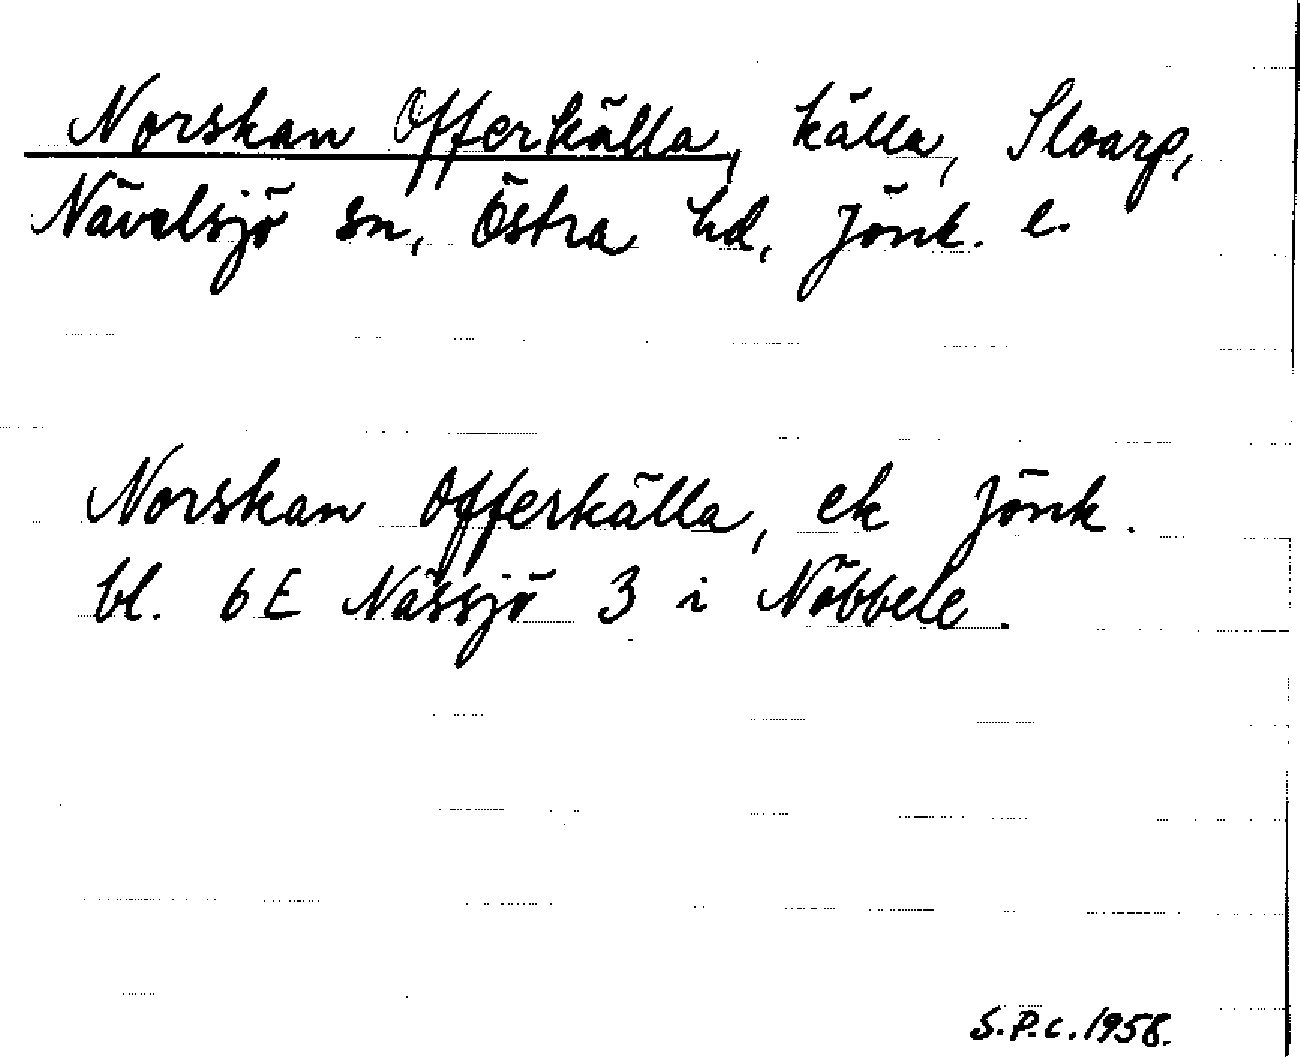 Norskan Offerkälla, källa, Sloarp,
Nävelsjö sn, Östra hd, Jönk. l.
Norskan Offerkälla, ek Jönk.
bl. 6E Nässjö 3 i Nöbbele.
S.P.C. 1958.